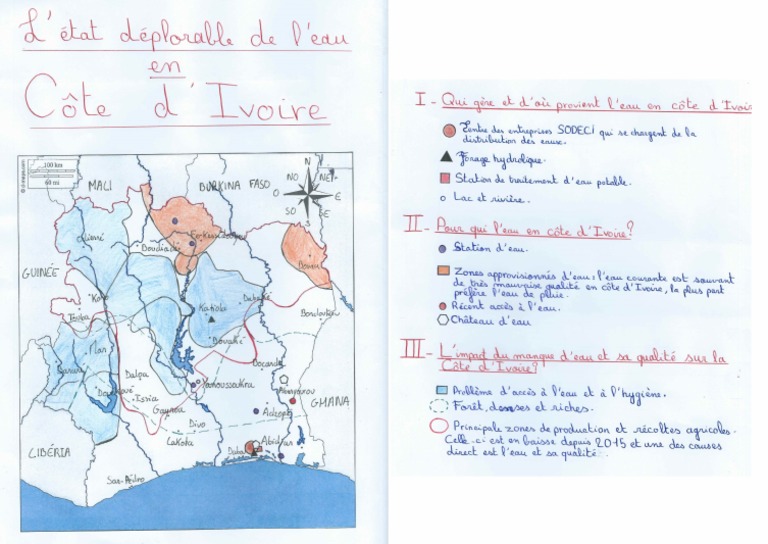 L'état déplorable de l'eau
en
Côte d'Ivoire
100 km
60 mi
MALI
BURKINA FASO
N
NO
NE
O
E
SO
SE
S
GUINÉE
Boundiali
Bouna
Katiola
Touba
Bondoukou
Bouaké
Man
Bocanda
Daloa
Yamoussoukro
Issia
Gagnoa
GHANA
Divo
Adzopé
Lakota
Abidjan
LIBÉRIA
San-Pédro
I - Qui gère et d'où provient l'eau en côte d'Ivoire
Centre des entreprises SODECI qui se chargent de la
distribution des eaux.
Forage hydrolique.
Station de traitement d'eau potable.
Lac et rivière.
II - Pour qui l'eau en côte d'Ivoire?
Station d'eau.
Zones approvisionnés d'eau: l'eau courante est souvant
de très mauvaise qualité en côte d'Ivoire, la plus part
préfère l'eau de pluie.
Récent accès à l'eau.
Château d'eau
III - L'impact du manque d'eau et sa qualité sur la
Côte d'Ivoire?
Problème d'accès à l'eau et à l'hygiène.
Forêt, denses et riches.
Principale zones de production et récoltes agricoles.
Celle-ci est en baisse depuis 2015 et une des causes
direct est l'eau et sa qualité.